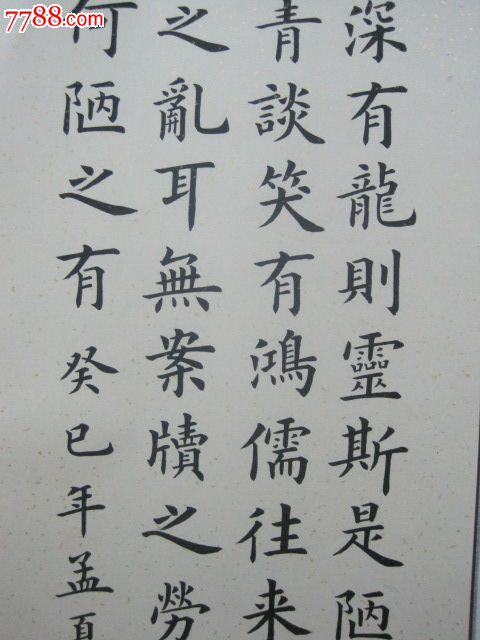 7788.com
深有龍則靈斯是陋
青談笑有鴻儒往来
之亂耳無案牘之勞
何陋之有癸巳年孟夏